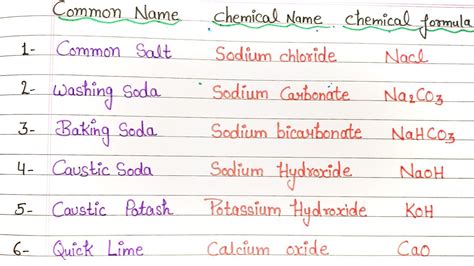 Common Name Chemical Name Chemical formula
1- Common Salt Sodium chloride Nacl
2- Washing Soda Sodium Carbonate Na2CO3
3- Baking Soda Sodium bicarbonate NaHCO3
4- Caustic Soda Sodium Hydroxide NaOH
5- Caustic Potash Potassium Hydroxide KOH
6- Quick Lime Calcium oxide CaO